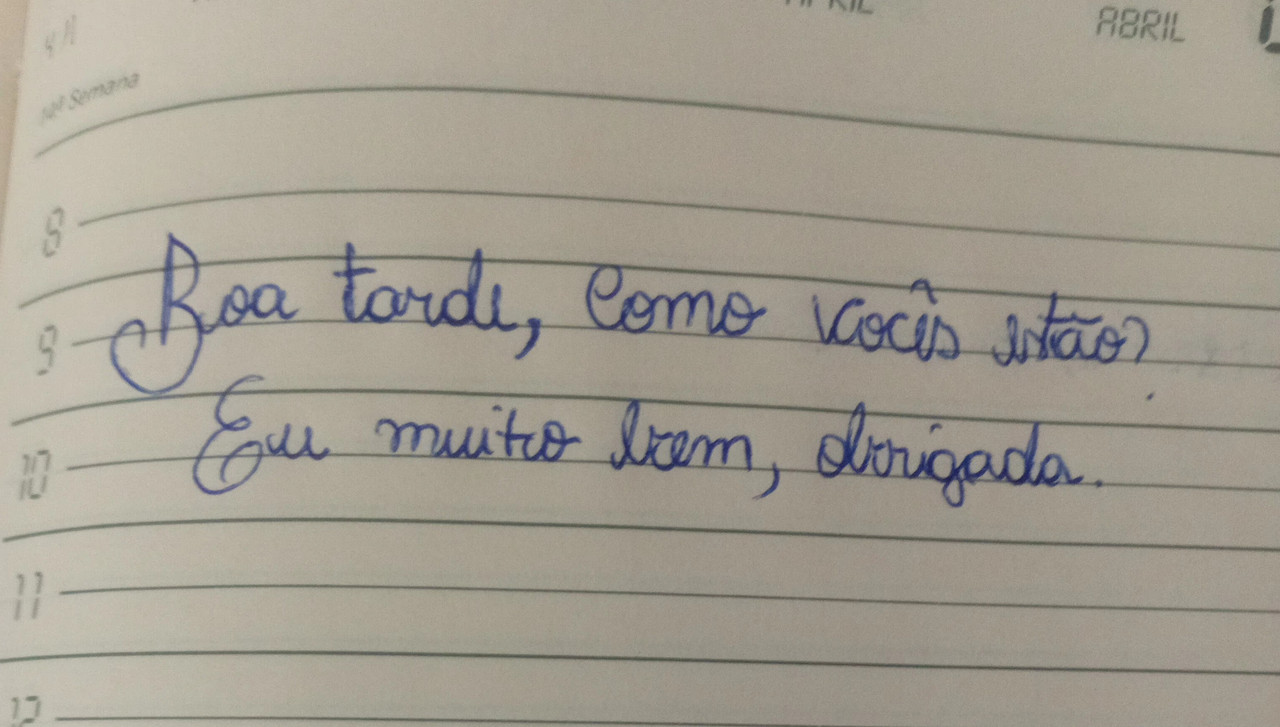 ABRIL
14ª Semana
8
Boa tarde, Como vocês estão?
9
Eu muito bem, obrigada.
10
11
12